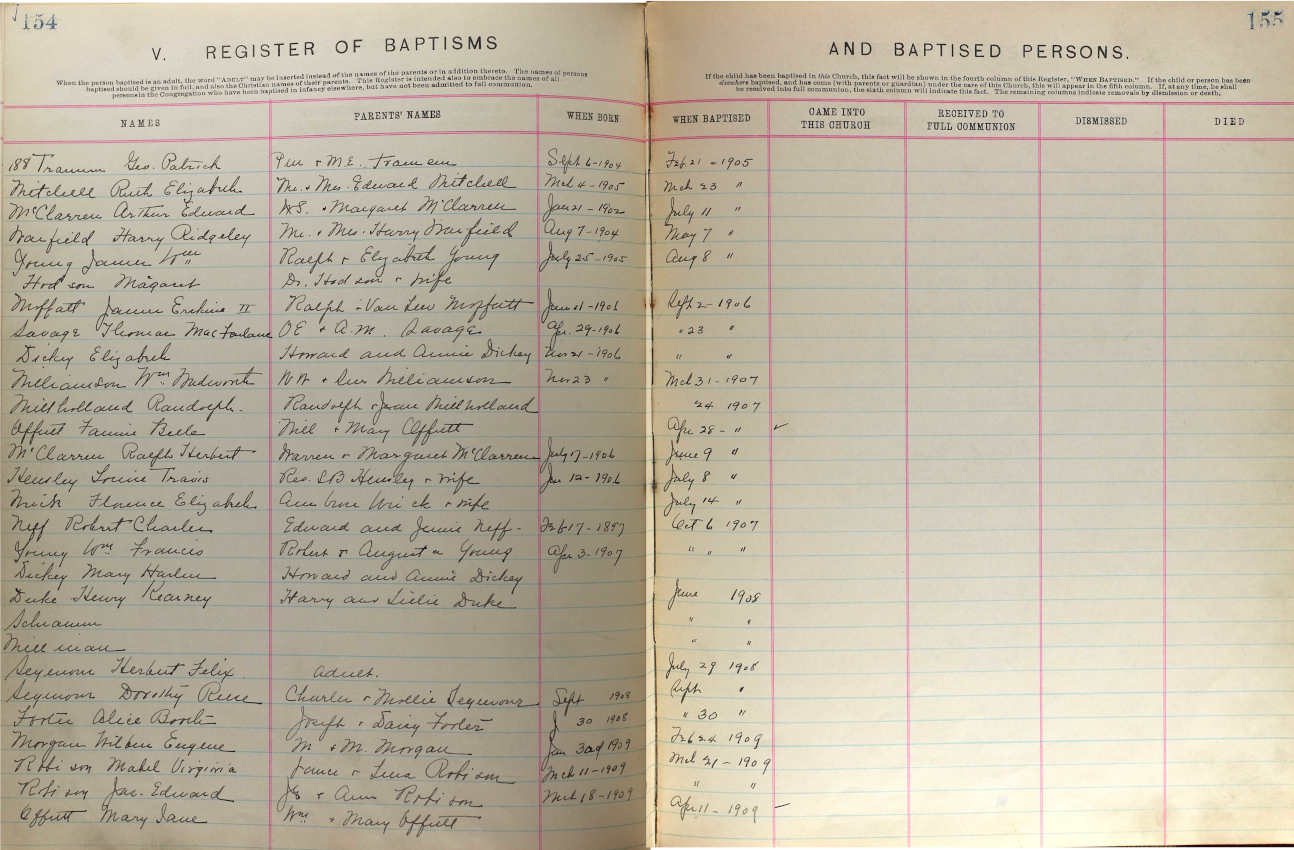 154
V. REGISTER OF BAPTISMS
When the person baptised is an adult, the word "ADULT" may be inserted instead of the names of the parents or in addition thereto. The names of persons
baptised should be given in full, and also the Christian names of their parents. This Register is intended also to embrace the names of all
persons in the Congregation who have been baptised in infancy elsewhere, but have not been admitted to full communion.
NAMES PARENTS' NAMES WHEN BORN
155
AND BAPTISED PERSONS.
If the child has been baptised in this Church, this fact will be shown in the fourth column of this Register, "WHEN BAPTISED." If the child or person has been
elsewhere baptised, and has come (with parents or guardian) under the care of this Church, this will appear in the fifth column. If, at any time, he shall
be received into full communion, the sixth column will indicate this fact. The remaining columns indicate removals by dismission or death.
WHEN BAPTISED CAME INTO THIS CHURCH RECEIVED TO FULL COMMUNION DISMISSED DIED
188 Geo. Patrick + M.E. Sept 6-1904 Feb 21-1905
Mitchell Ruth Elizabeth Mr. + Mrs. Edward Mitchell Mch 4-1905 Mch 23 "
McClarren Arthur Edward + Margaret McClarren Jan 21-1902 July 11 "
Warfield Harry Ridgeley Mr. + Mrs. Harry Warfield Aug 7-1904 May 7 "
Young James Wm Ralph + Elizabeth Young July 25-1905 Aug 8 "
Hodson Magaret Dr. Hodson + wife
Moffatt James Erskine II Ralph + Van Lew Moffatt 1906 Sept 2-1906
Savage Thomas MacFarlane OE + A.M. Savage Apr. 29-1906 " 23 "
Dickey Elizabeth Howard and Annie Dickey Nov 21-1906 " "
Williamson Wm. Williamson Nov 23 " Mch 31-1907
Millholland Randolph. Randolph + Jean Millholland " 24 1907
Offutt Fannie Belle Will + Mary Offutt Apr 28- " ✓
McClarren Ralph Herbert Warren + Margaret McClarren July 17-1906 June 9 "
Hensley Louise Travis Rev. Hensley + wife Jan 12-1906 July 8 "
Wick Florence Elizabeth Wick + wife July 14 "
Neff Robert Charles Edward and Jennie Neff- Feb 17-1897 Oct 6 1907
Young Wm. Francis Robert + Augusta Young Apr 3-1907 " " "
Dickey Mary Harlan Howard and Annie Dickey
Duke Henry Kearney Harry and Lillie Duke June 1908
Schramm " "
Millman " "
Seymour Herbert Felix Adult. July 29 1908
Seymour Dorothy Charles + Mollie Seymour Sept 1908 Sept "
Foster Alice Booth Joseph + Daisy Foster 30 1908 " 30 "
Morgan Eugene M + M. Morgan Jan 1909 Feb 24 1909
Robison Mabel Virginia James + Lena Robison Mch 11-1909 Mch 21-1909
Robison Jas. Edward + Ann Robison Mch 18-1909 " "
Offutt Mary Jane Wm + Mary Offutt Apr 11-1909